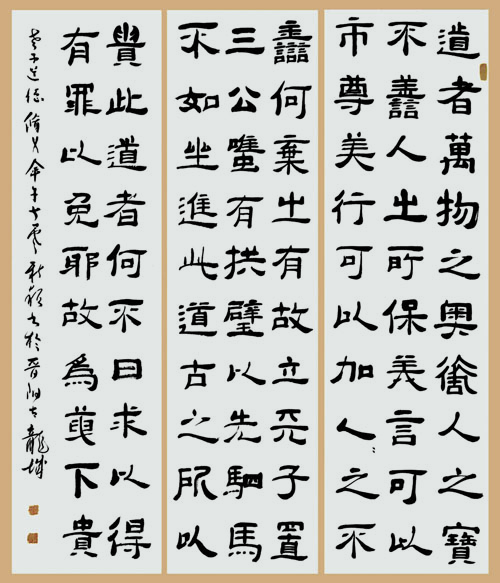 道者萬物之奧善人之寶
不譱人之所保美言可以
市尊美行可以加人〻之不
譱何棄之有故立天子置
三公雖有拱璧以先駟馬
不如坐進此道古之所以
貴此道者何不曰求以得
有罪以免耶故為天下貴
老子道德 書於晉陽古龍城